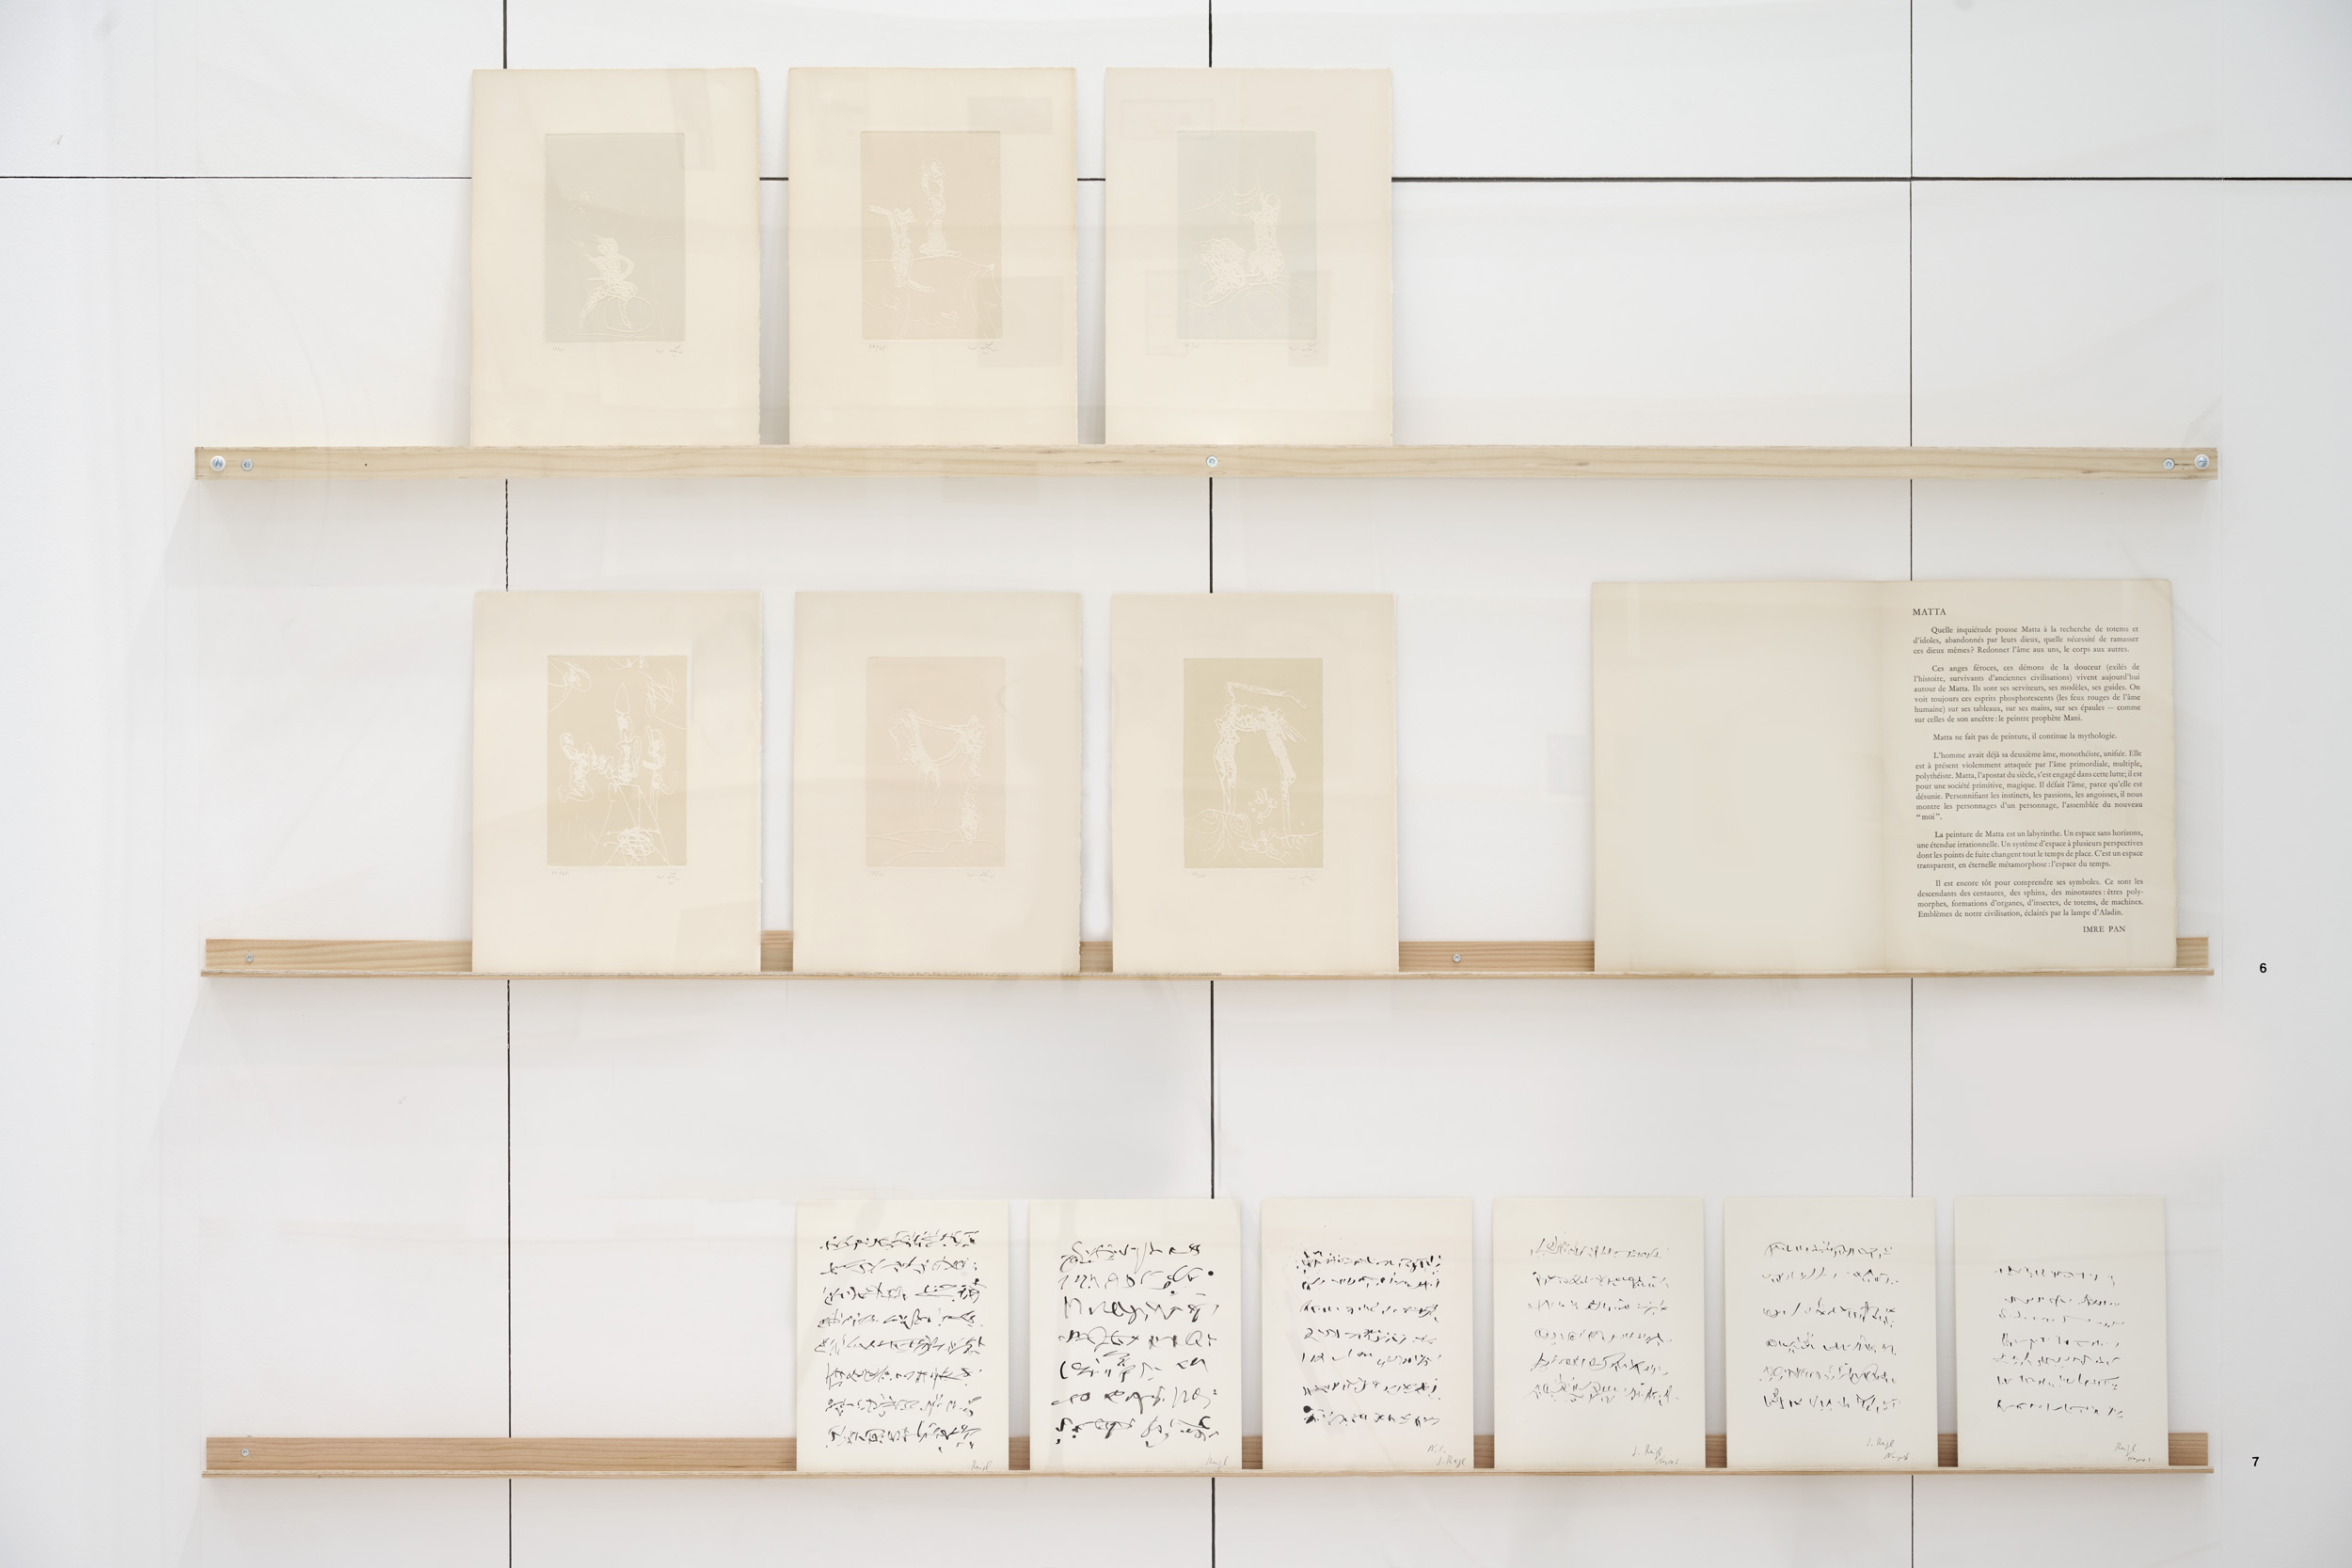 MATTA
Quelle inquiétude pousse Matta à la recherche de totems et
d'idoles, abandonnés par leurs dieux, quelle nécessité de ramasser
ces dieux mêmes? Redonner l'âme aux uns, le corps aux autres.
Ces anges féroces, ces démons de la douceur (exilés de
l'histoire, survivants d'anciennes civilisations) vivent aujourd'hui
autour de Matta. Ils sont ses serviteurs, ses modèles, ses guides. On
voit toujours ces esprits phosphorescents (les feux rouges de l'âme
humaine) sur ses tableaux, sur ses mains, sur ses épaules — comme
sur celles de son ancêtre: le peintre prophète Mani.
Matta ne fait pas de peinture, il continue la mythologie.
L'homme avait déjà sa deuxième âme, monothéiste, unifiée. Elle
est à présent violemment attaquée par l'âme primordiale, multiple,
polythéiste. Matta, l'apostat du siècle, s'est engagé dans cette lutte; il est
pour une société primitive, magique. Il défait l'âme, parce qu'elle est
désunie. Personnifiant les instincts, les passions, les angoisses, il nous
montre les personnages d'un personnage, l'assemblée du nouveau
"moi".
La peinture de Matta est un labyrinthe. Un espace sans horizons,
une étendue irrationnelle. Un système d'espace à plusieurs perspectives
dont les points de fuite changent tout le temps de place. C'est un espace
transparent, en éternelle métamorphose: l'espace du temps.
Il est encore tôt pour comprendre ses symboles. Ce sont les
descendants des centaures, des sphinx, des minotaures: êtres poly-
morphes, formations d'organes, d'insectes, de totems, de machines.
Emblèmes de notre civilisation, éclairés par la lampe d'Aladin.
IMRE PAN
6
7